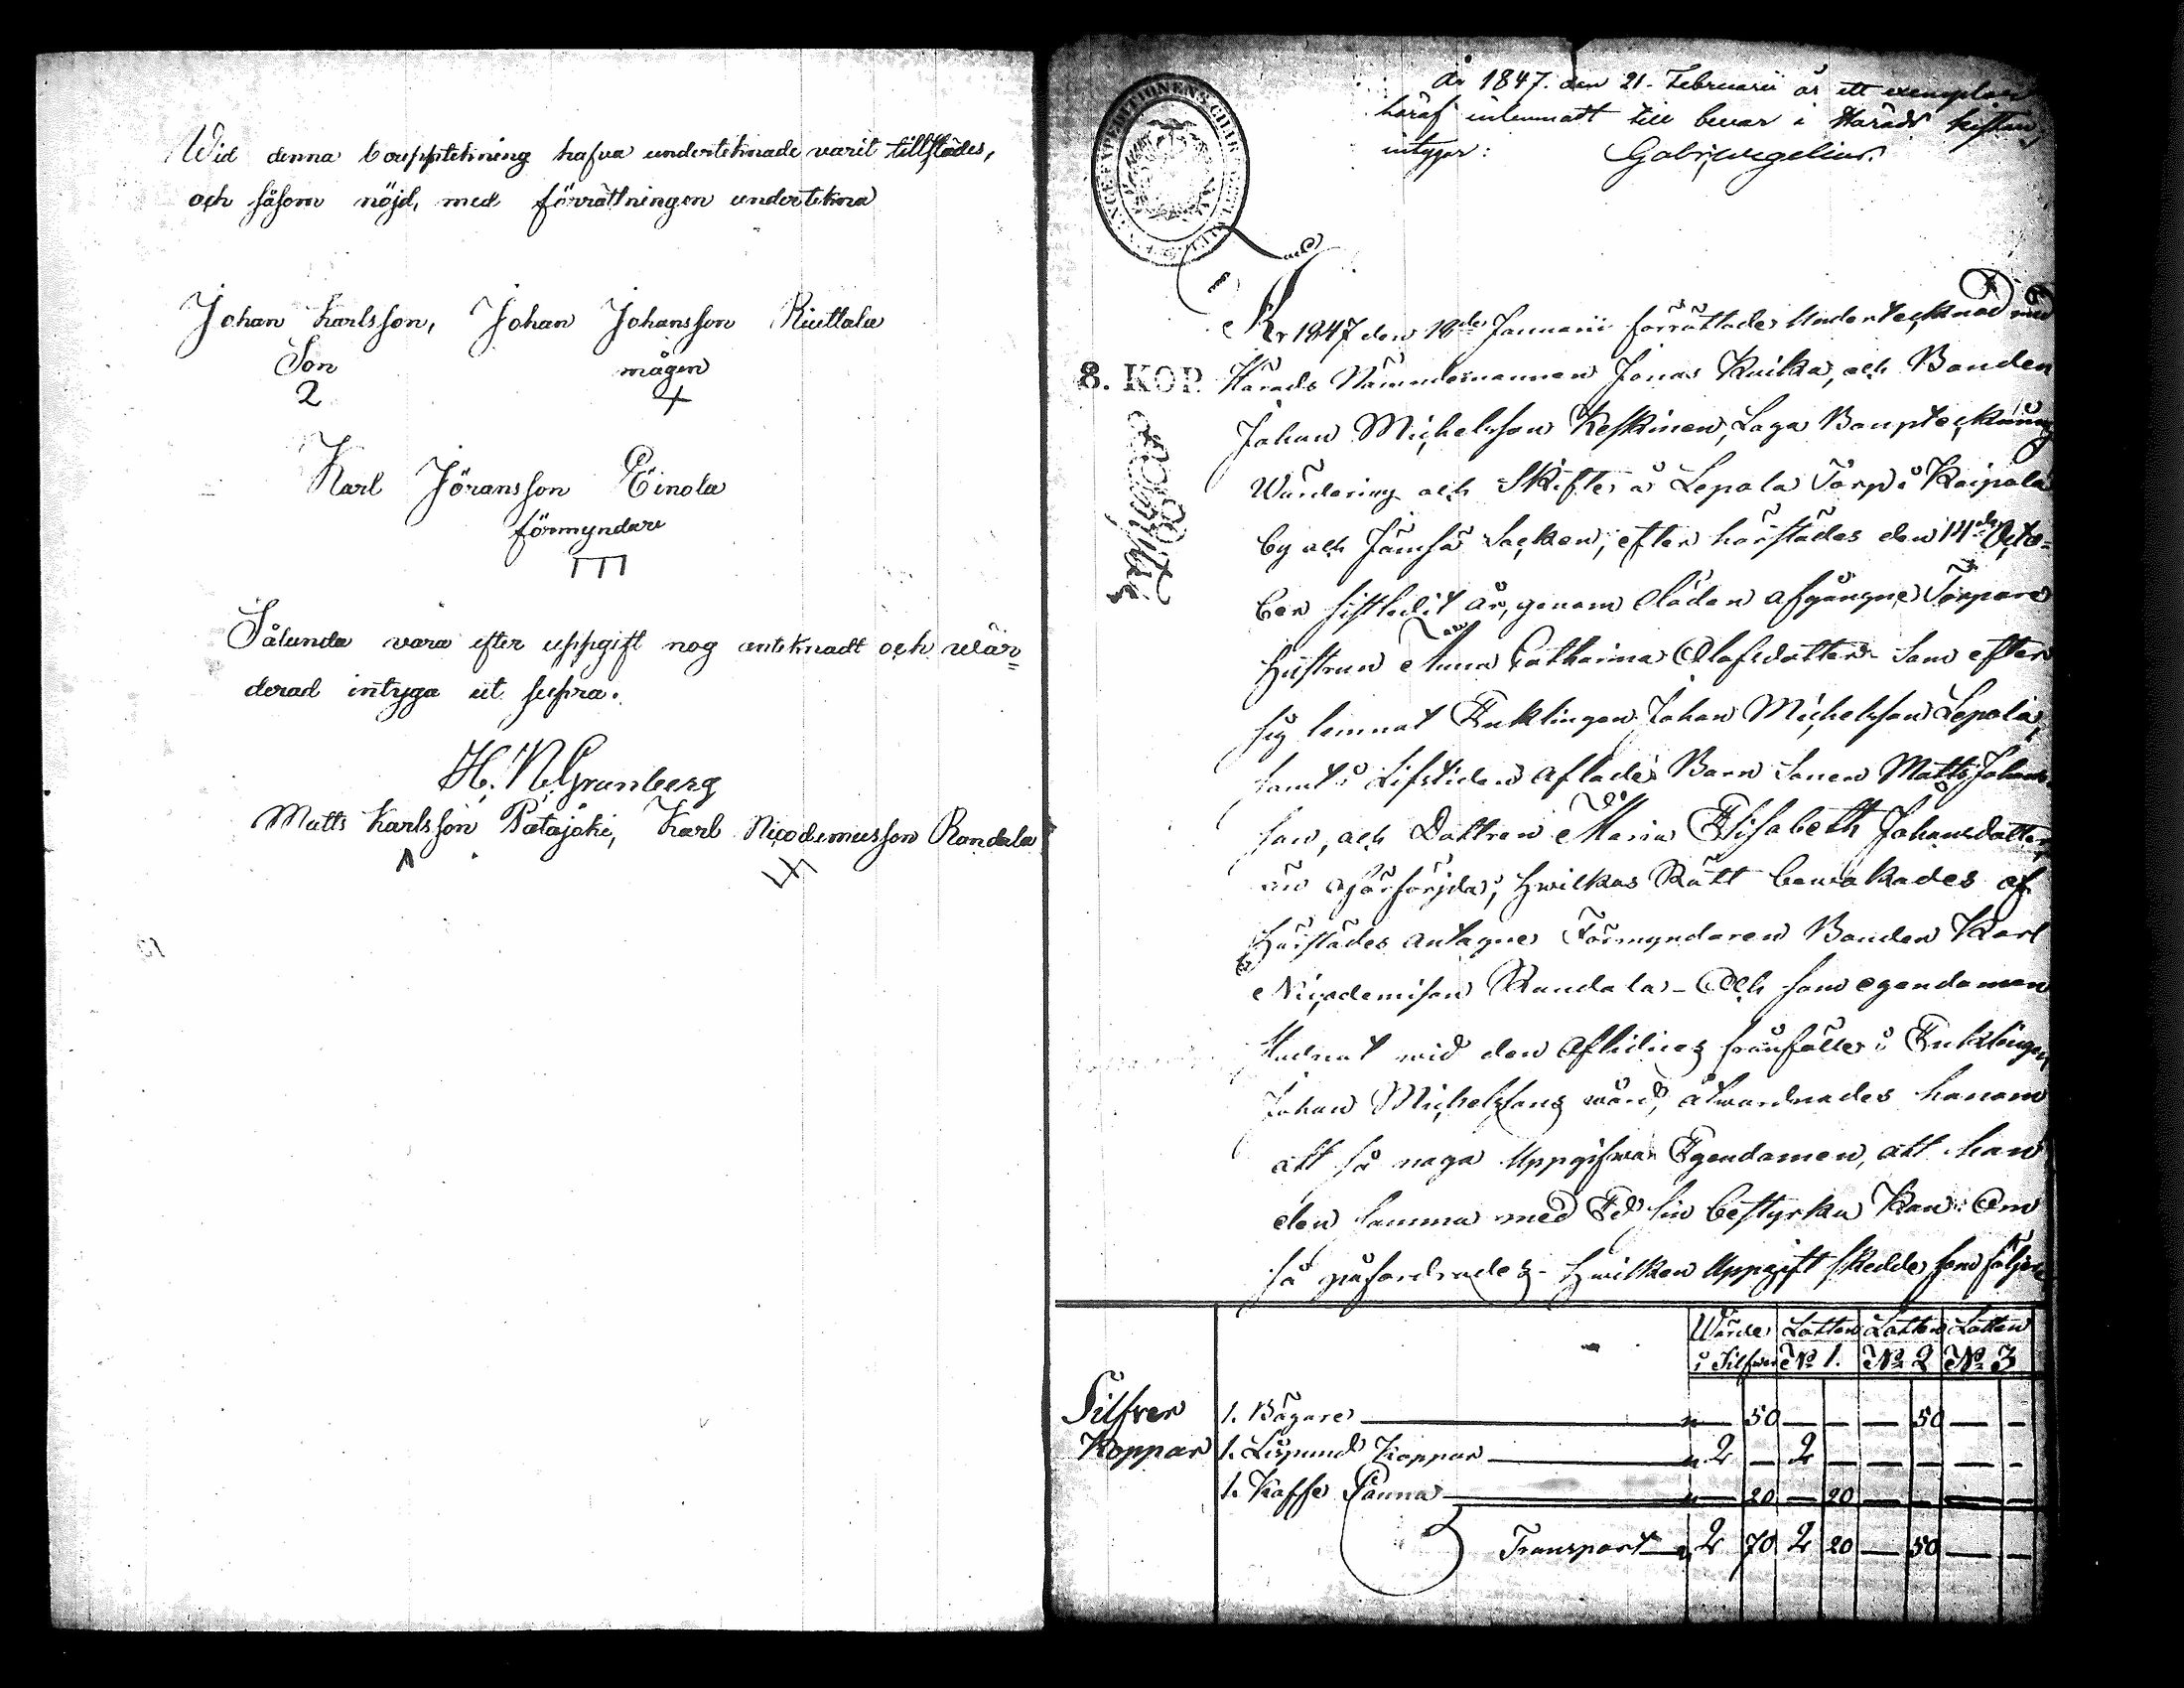 Wid denna boupptekning hafva undertecknade varit tillstädes,
och såsom nöjd, med förrättningen underteckna
Johan Karlsson, Johan Johansson Riuttala
Son mågen
2
Karl Jöransson Einola
förmyndare
Sålunda vara efter uppgift nog antecknadt och wär=
derad intyga ut supra.
H. N. Granberg
Matts Karlsson Patajoki, Karl Nicodemusson Randala
År 1847. den 21. Februarii är ett exemplar
häraf inlemnatt till bevar i Härads kistan,
intygar: Gab: Wegelius.
8. KOP.
År 1847 den 19de Januarii förrättades Undertecknad med
Härads Nämndemannen Jonas Kuikka, och Bonden
Johan Michelsson Keskinen, Laga Bouptekning
Wärdering och Skifte å Lepola Torp i Kaipola
by och Jämsä Socken, efter härstädes den 14de Octo=
ber sistledit år, genom döden afgångne Torpare
Hustrun Anna Catharina Olofsdotter som efter
sig lemnat Enklingen Johan Michelsson Lepola,
samt i Lifstiden aflade Barn Sonen Matts Johans
son, och Dottren Maria Elisabeth Johansdotter,
än oförsörjda, hwilkas Rätt bewakades af
härstädes antagne Förmyndaren Bonden Karl
Nicodemison Randala - Och som egendomen
stadnat wid den Aflidnes frånfälle i Enklingen
Johan Michelssons wård, åtwarnades honom
att så noga Uppgifwa Egendomen, att han
den samma med Ed sin bestyrka Kan: Om
så påfordrades - Hwilken Uppgift skedde som följer
Wärde Lotten Lotten Lotten
i Silfwer No 1. No 2 No 3
Silfver 1. Bägare — " — 50 — — — 50 — —
Koppar 1. Lispund Koppar — " 2 — 2 — — — — —
1. Kaffe Panna — " — 20 — 20 — — — —
Transport — " 2 70 2 20 — 50 — —